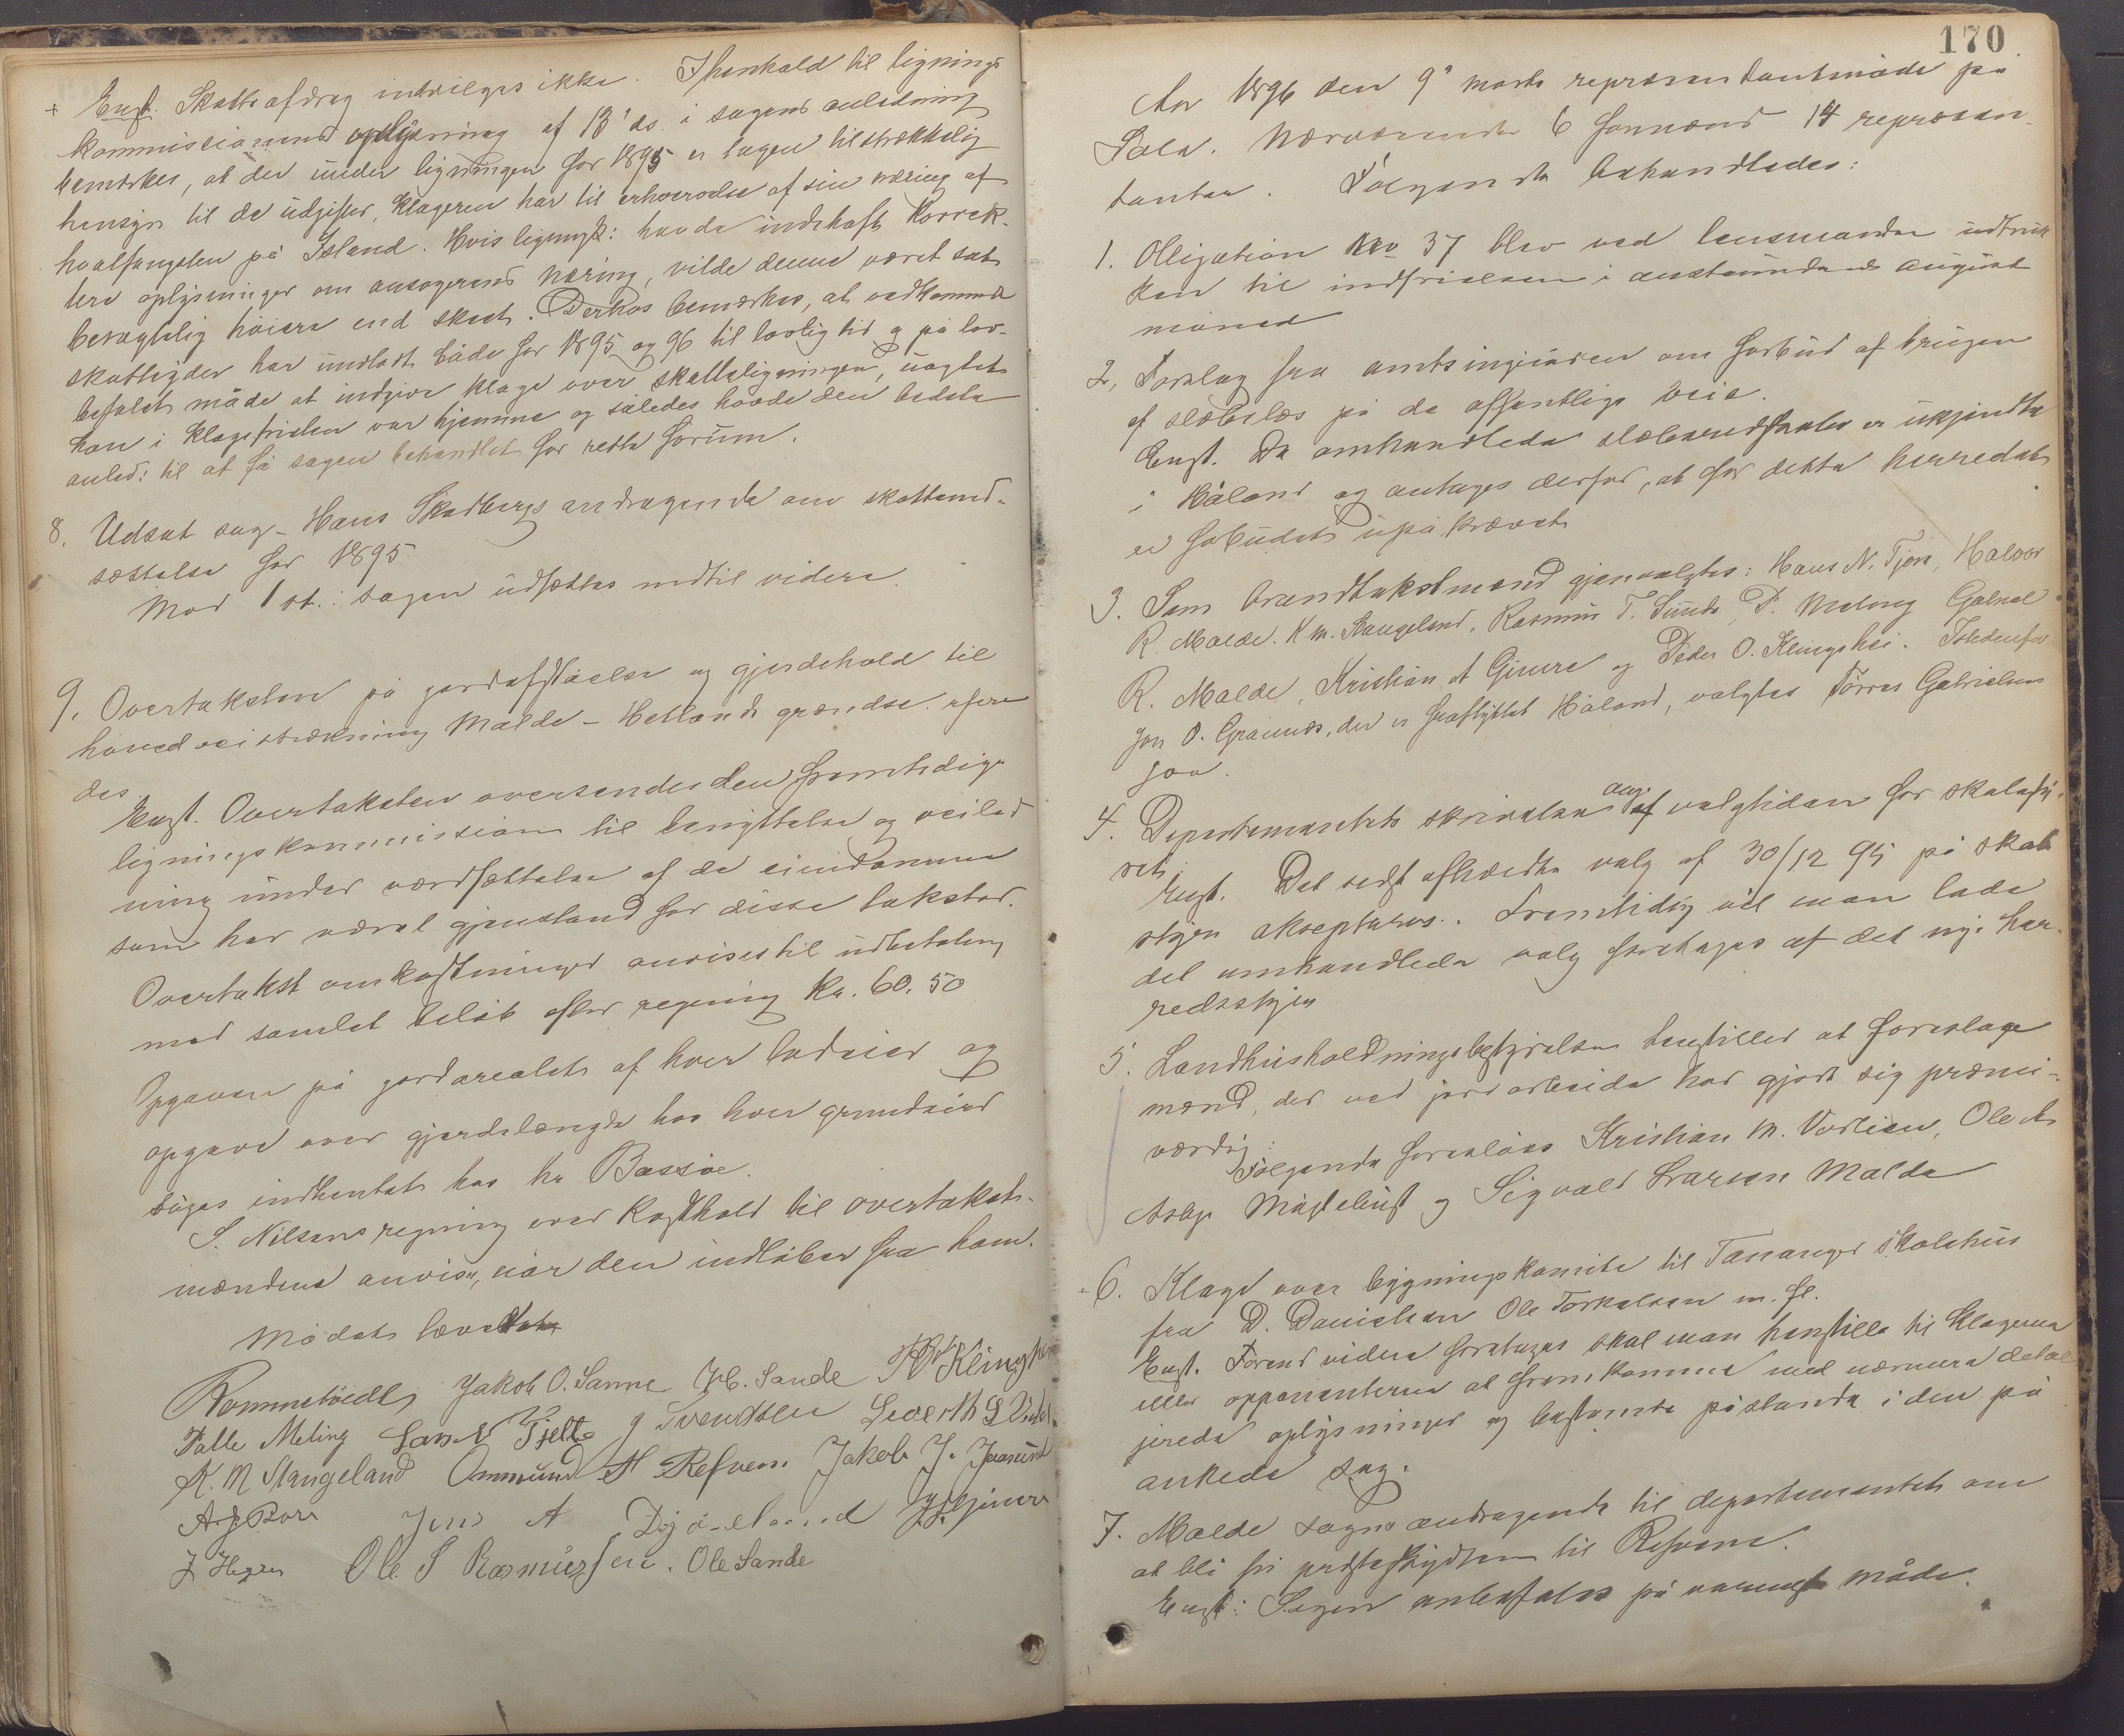 + Enst. Skatteafdrag indvilges ikke. I henhold til lignings
kommissionens oplysning af 13' ds. i sagens anledning
bemærkes, at der under ligningen for 1895 er tagen tilstrækkelig
hensyn til de udgifter, klageren har til erhvervelse af sin næring af
hvalfangsten på Island. Hvis ligningsk: havde indehaft korrek-
tere oplysninger om ansøgerens næring, vilde denne været sat
betragtelig høiere end skeet. Derhos bemærkes, at vedkommende
skatteyder har undladt både for 1895 og 96 til lovlig tid og på lov-
befalet måde at indgive klage over skatteligningen, uagtet
han i klagefristen var hjemme og således havde den bedste
anled: til at få sagen behandlet for rette forum.
8. Udsat sag - Hans Skadbergs andragende om skattened-
sættelse for 1895
Mod 1 st.: sagen udsættes indtil videre.
9. Overtaksten på jordafståelse og gjerdehold til
hovedveistrækning Malde - Hetlands grændse. refere
des
Enst. Overtaksten oversendes den fremtidige
ligningskommission til benyttelse og veiled
ning under værdsættelse af de eiendomme
som har været gjenstand for disse takster.
Overtakst omkostninger anvises til udbetaling
med samlet beløb efter regning Kr. 60.50
Opgaven på jordarealet af hver lodeier og
opgave over gjerdelængde hos hver grundeier
søges indhentet hos hr Bassøe.
S. Nilsens regning over kosthold til overtakst-
mændene anvises, når den indløber fra ham.
Mødet hævet
Rommetvedt Jakob O. Sømme H. Sande P O Klingshei
Palle Meling Lars E Tjelta J Svendsen Sivert S
K. M Stangeland Ommund H Refvem Jakob J. Jaasund
A. J. Bore Jens A Djøseland J. Gimre
J Ole S Rasmussen. Ole Sande
170
År 1896 den 9' marts repræsentantmøde på
Sola. Nærværende 6 formænd 14 repræsen-
tanter. Følgende behandledes:
1. Obligation No 37 blev ved lensmanden udtruk
ken til indfrielse i anstundende august
måned
2. Forslag fra amtsingeniøren om forbud af brugen
af slæbelæs på de offentlige veie.
Enst. De omhandlede slæberedskaber er ukjendte
i Håland og antages derfor, at for dette herredet
er forbudet upåkrævet
3. Som brandtakstmænd gjenvalgtes: Hans N. Tjora, Halvor
R. Malde. K M. Stangeland, Rasmus T. Sunde, P. Meling Gabriel
R. Malde, Kristian A Gimre og Peder O. Klingshei. Istedenfor
Jon O. Grannes, der er fraflyttet Håland, valgtes Tørres Gabrielsen
Joa.
4. Departementets skrivelse ang. af valgtiden for skolesty-
ret.
Enst. Det sidst afholdte valg af 30/12 95 på skole
styre akcepteres. Fremtidig vil man lade
det omhandlede valg foretages af det nye her-
redsstyre
5. Landhusholdningsbestyrelsen henstiller at foreslage
mænd, der ved jordarbeide har gjort sig præmi-
værdig:
Følgende foreslåes Kristian M. Vølien, Ole As
Aske Myklebust og Sigvald Larsen Malde
+ 6. Klage over bygningskomite til Tananger skolehus
fra D. Danielsen Ole Torkelsen m. fl.
Enst. Førend videre foretages skal man henstille til klagerne
eller opponenterne at fremkomme med nærmere detal
jerede oplysninger og bestemte påstande i den på
ankede sag.
7. Malde sogns andragende til departementet om
at bli fri presteskydsen til Refvem.
Enst: Sagen anbefales på varmeste måde.